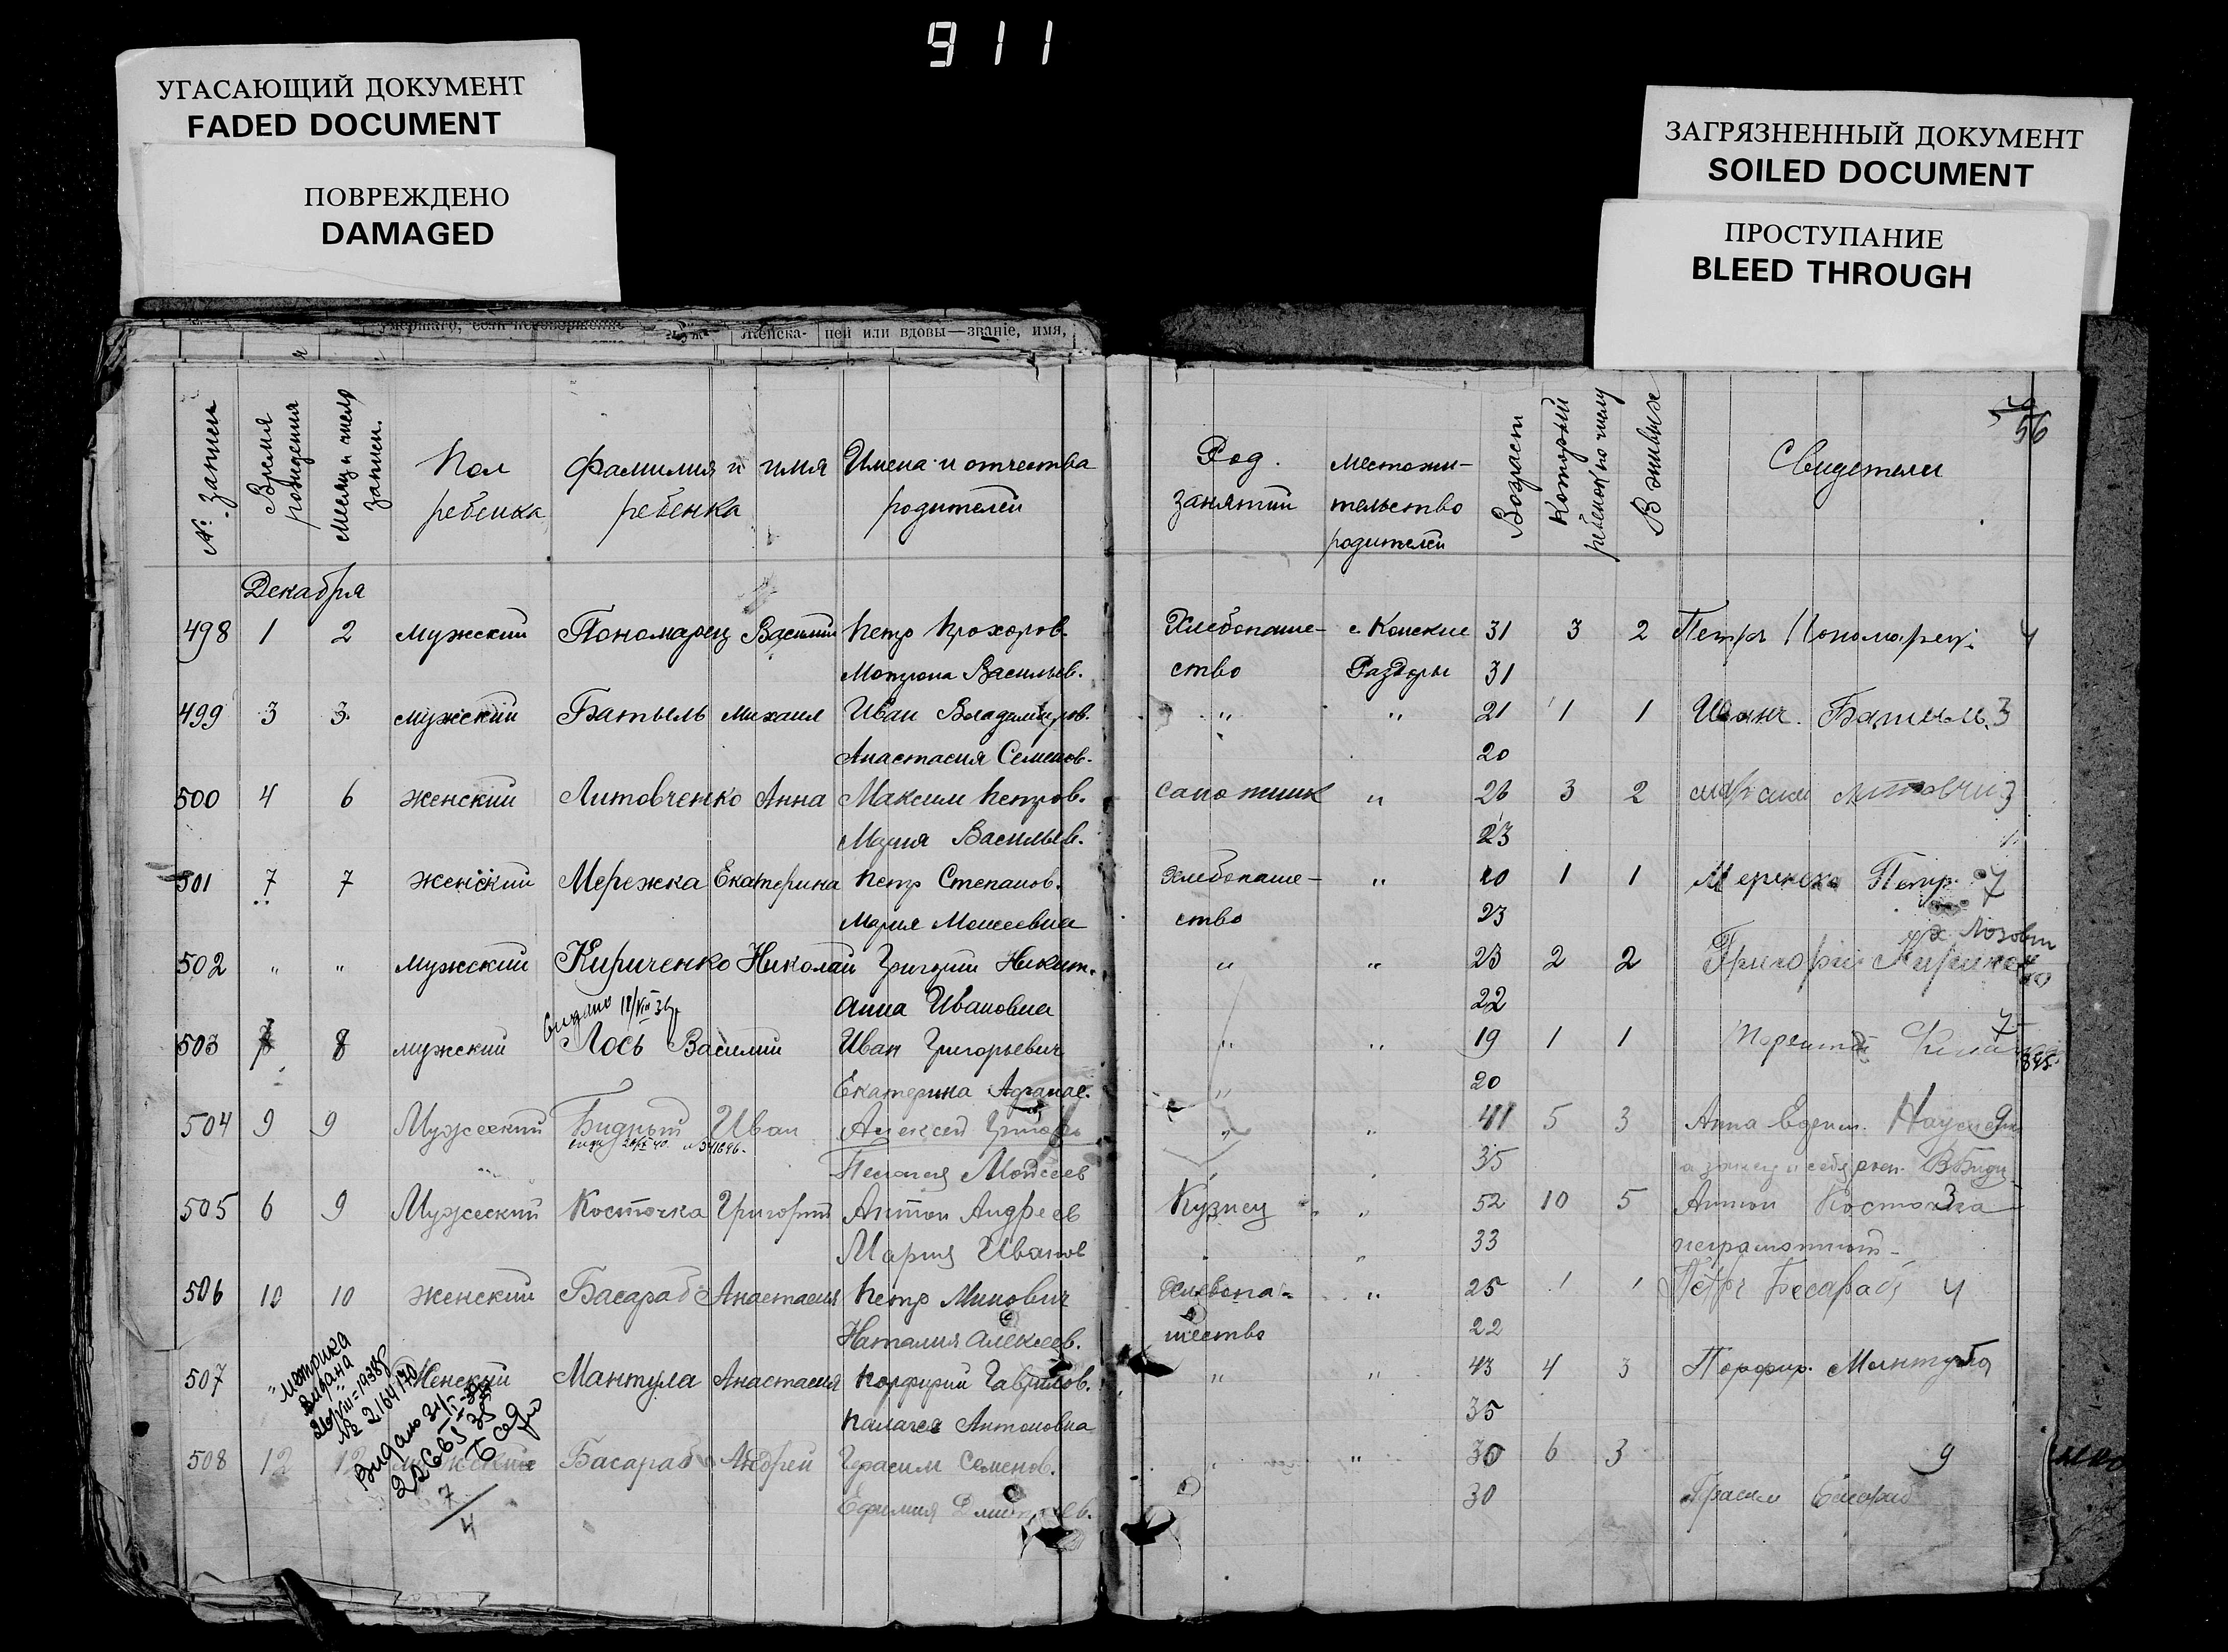 911
УГАСАЮЩИЙ ДОКУМЕНТ
FADED DOCUMENT
ПОВРЕЖДЕНО
DAMAGED
ЗАГРЯЗНЕННЫЙ ДОКУМЕНТ
SOILED DOCUMENT
ПРОСТУПАНИЕ
BLEED THROUGH
женска- ней или вдовы—званіе, имя,
56
№ записи Время рождения Месяц и число записи. Пол ребенка фамилия и имя ребенка Имена и отчества родителей Род занятий Местожительство родителей Возраст Который ребенок по числу В живых Свидетели
Декабря
498 1 2 мужский Пономарец Василий Петр Прохоров. Хлебопаше- с Конские 31 3 2 Петръ Пономарец. 4
Мотрона Васильев. ство Раздоры 31
499 3 3 мужский Батыль Михаил Иван Владимиров. " " 21 1 1 Иванъ Батыль 3
Анастасия Семенов. 20
500 4 6 женский Литовченко Анна Максим Петров. сапожник " 26 3 2 3
Мария Васильев. 23
501 7 7 женский Мережка Екатерина Петр Степанов. Хлебопаше- " 20 1 1 Мережка Петр. 7
Мария Моисеевна ство 23
502 " " мужский Кириченко Николай Григорий Никит. " " 23 2 2 Григорій
Анна Ивановна 22
видано 18/VIII 36
503 7 8 мужский Лось Василий Иван Григорьевич " " 19 1 1 7
Екатерина Афанас. " 20
504 9 9 Мужеский Бидный Иван Алексей Григорь " " 41 5 3 Анна 9
Пелагея Моисеев " " 35
505 6 9 Мужеский Косточка Григорий Антон Андреев Кузнец " " 52 10 5 Антон Косточка 3
Мария Иванов " 33 неграмотный-
506 10 10 женский Басараб Анастасия Петр Минович Хлебопа- " 25 1 1 Петр Басараб 4
Наталия Алексеев. шество 22
507 Женский Мантула Анастасия Порфирий Гаврилов. " " 43 4 3 Порфир. Мантула
Палагея Антоновна 35
"метрика
видана"
№ 2164170
508 12 12 Басараб Андрей Герасим Семенов. " " 30 6 3 9
Ефимия 30 Басараб
7/4